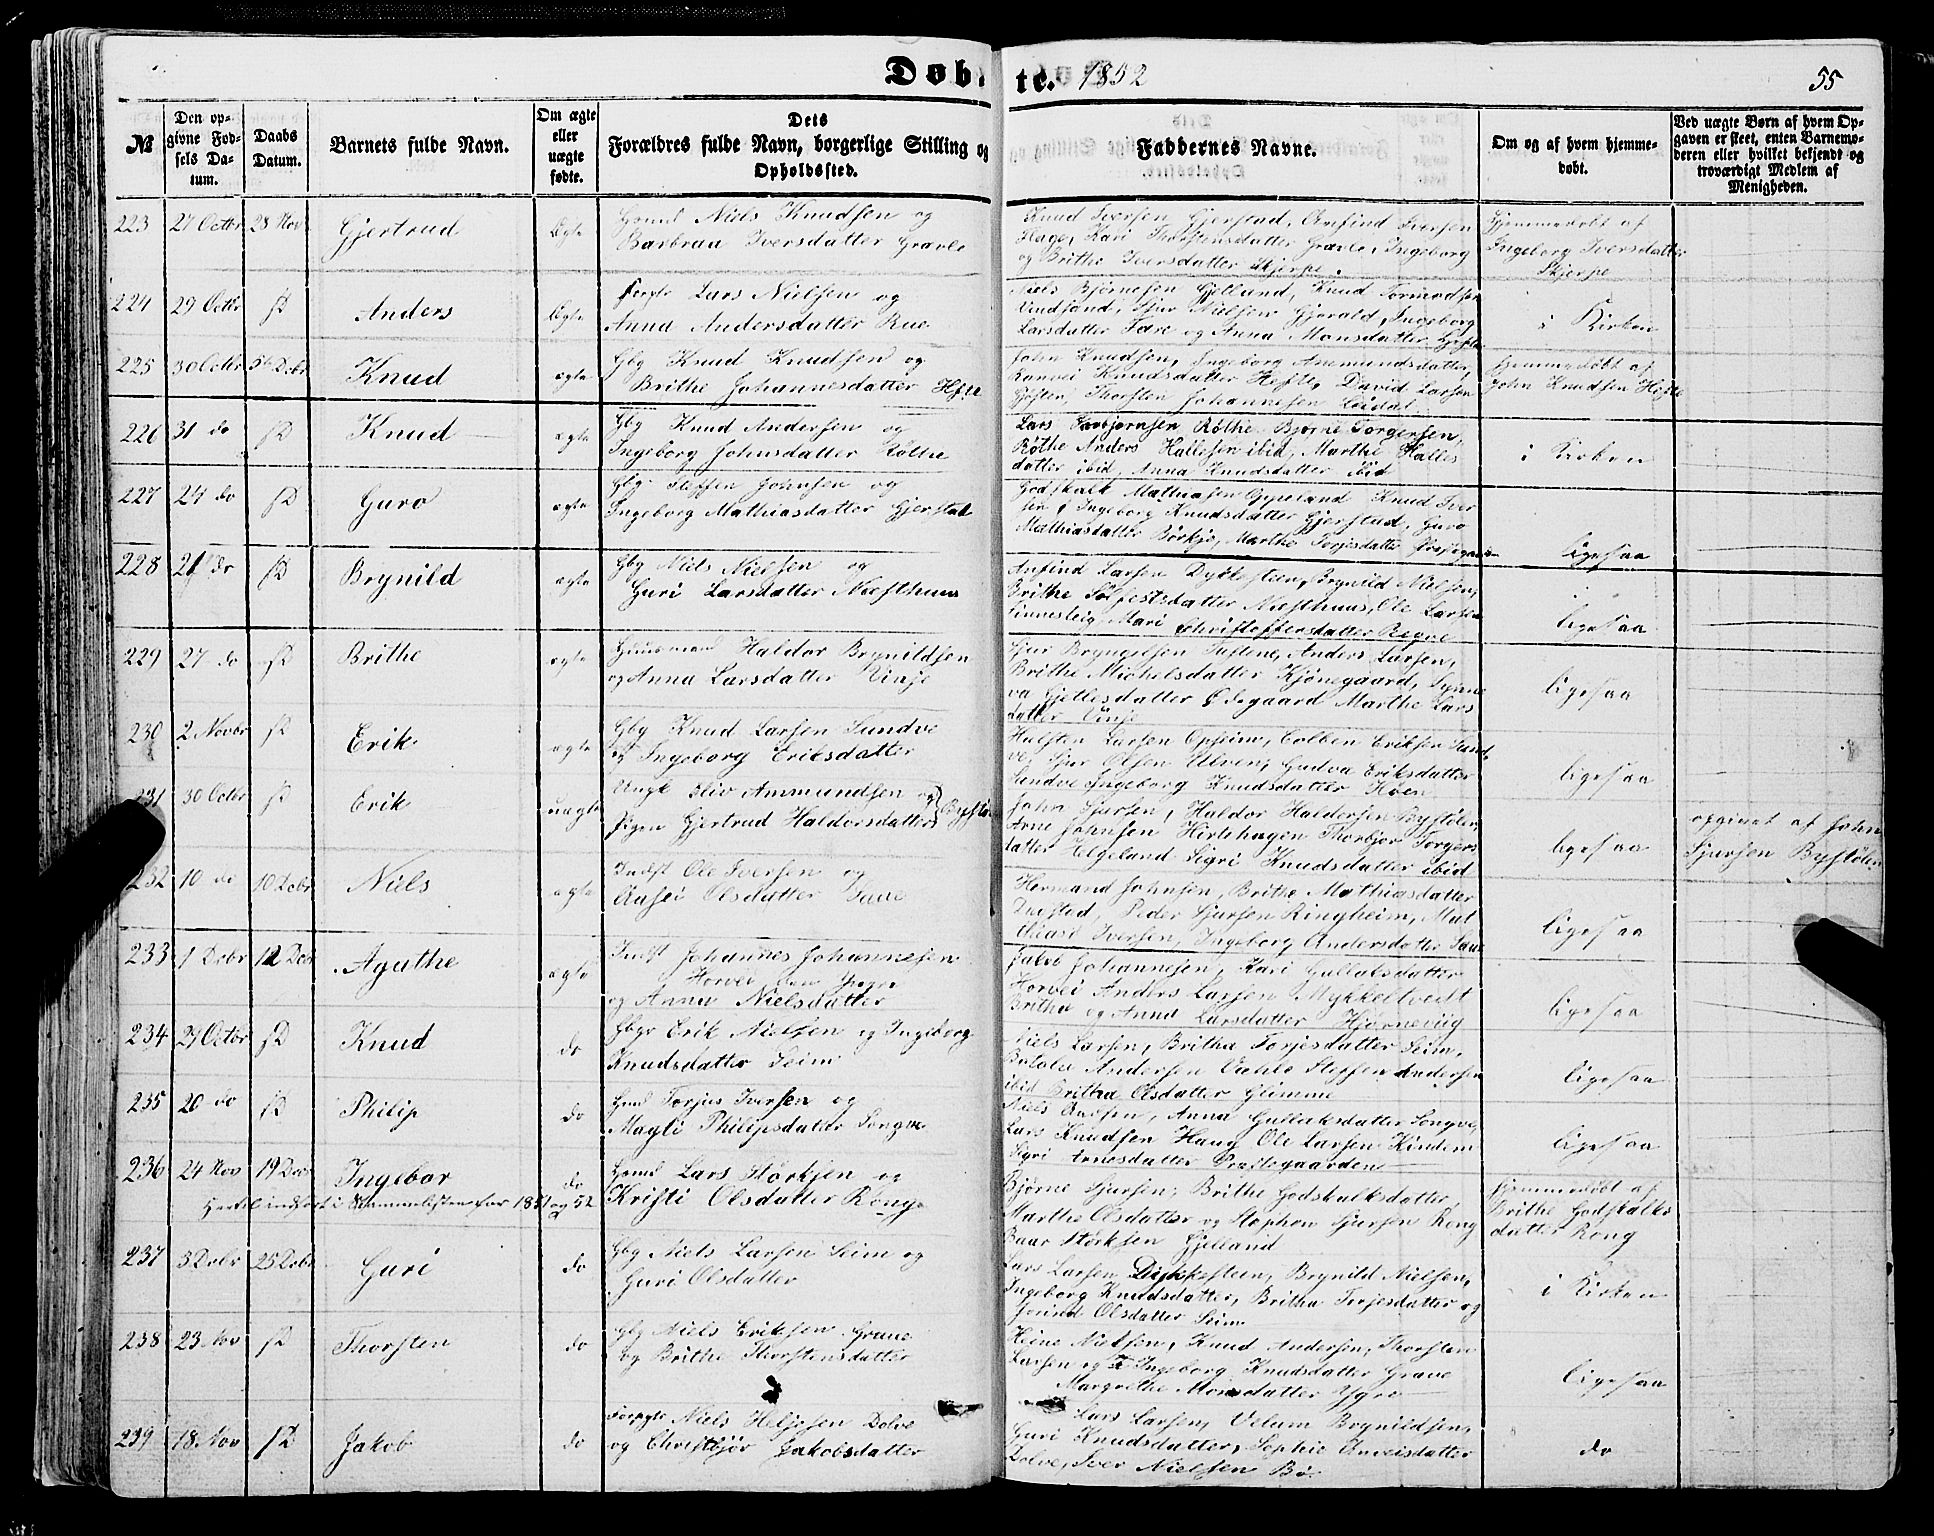 Døbte. 1852
55
№
Den opgivne Fødsels Datum.
Daabs Datum.
Barnets fulde Navn.
Om ægte eller uægte fødte.
Dets Forældres fulde Navn, borgerlige Stilling og Opholdssted.
Faddernes Navne.
Om og af hvem hjemmedøbt.
Ved uægte Børn af hvem Opgaven er skeet, enten Barnemoderen eller hvilket bekjendt og troværdigt Medlem af Menigheden.
223 27 Octbr 28 Nov Gjertrud Ægte Niels Knudsen og
Barbraa Iversdatter Gravle
Knud Iversen Gjerstad, Arnfind Iversen
Hage, Kari Thorstensdatter Gravle, Ingeborg
og Brithe Iversdatter Skjerpe.
Hjemmedøbt af
Ingeborg Iversdatter
Skjerpe
224 29 Octbr D Anders Ægte Lars Nielsen og
Anna Andersdatter Rue
Niels Bjørnesen Gjelland, Knud Tormodsen
Sjur Nielsen Ingeborg
Larsdatter og Anna Monsdatter
i Kirken
225 30 Octbr 5te Decbr Knud ægte Gbg Knud Knudsen og
Brithe Johannesdatter
John Knudsen, Ingeborg
Ranvei Knudsdatter Hefte, David Larsen
Thorsten Johannesen
hjemmedøbt af
John Knudsen Hefte
226 31 do D Knud ægte Gbg Knud Andersen og
Ingeborg Johnsdatter Røthe
Lars Røthe Bjørne Torgersen,
Røthe Anders Hallesen ibid, Marthe Halles
datter ibid, Anna Knudsdatter ibid
i Kirken
227 24 do D Guro ægte Gbg Steffen Johnsen og
Ingeborg Mathiasdatter Gjerstad
Godskalk Mathiasen Gjeland Knud Iver
sen Ingeborg Knudsdatter Gjerstad, Guro
Mathiasdatter Børkje, Marthe Torjesdatter
ligesaa
228 21 do D Brynild ægte Gbg Niels Nielsen og
Guri Larsdatter Næsthuus
Anfind Larsen Dykkesteen, Brynild Nielsen,
Brithe Sjelfestsdatter Næsthuus, Ole Larsen
Finnesleig, Mari Christoffersdatter
ligesaa
229 27 do D Brithe ægte Huusmand Haldor Brynildsen
og Anna Larsdatter Vinje
Sjur Bryngelsen Tuftene, Anders Larsen,
Brithe Michelsdatter Kjønegaard, Synne
va Gjellesdatter Ødegaard Marthe Lars
datter Vinje
ligesaa
230 2 Novbr D Erik ægte Gbg Knud Larsen Sundve
og Ingeborg Eriksdatter
Halsten Larsen Opheim, Colben Eriksen Sund
ve, Sjur Olsen Ulven, Gudva Eriksdatter
Sundve Ingeborg Knudsdatter Hæen
ligesaa
231 30 Octbr D Erik uægte Ungk Sliv Ammundsen og
Pigen Gjertrud Haldorsdatter
John Sjursen, Haldor Haldorsen Bystølen,
Arne Johnsen Hirtehagen Thorbjør Torgers
datter Helgeland Sigri Knudsdatter ibid
ligesaa
opgivet af John
Sjursen Bystølen
232 10 do 10 Decbr Niels ægte Indst Ole Iversen og
Olsdatter Saue
Hermand Johnsen, Brithe Mathiasdatter
Peder Sjursen Ringheim, Mat
thias Iversen, Ingeborg Andersdatter Saue
ligesaa
233 1 Decbr 12 Dec Agathe ægte Indst Johannes Johannesen
Horvei den yngre
og Anna Nielsdatter
Jakob Johannesen, Kari Gullaksdatter
Horvei Anders Larsen Mykkeltvedt
Britha og Anna Larsdatter Hjørnevig
ligesaa
234 29 Octbr D Knud do Gbgr Erik Nielsen og Ingeborg
Knudsdatter Seim
Niels Larsen, Britha Torjesdatter Seim,
Botolv Andersen Væhle Steffen Andersen
ibid Britha Olsdatter Glimme
ligesaa
235 20 do D Philip do Torjus Iversen og
Magli Philipsdatter Songve
Niels Anna Gullaksdatter Songve,
Lars Knudsen Haug Ole Larsen Kindem
Sigri Arnesdatter Præstegaarden
ligesaa
236 24 Nov 19 Decb Ingebor do Lars Størksen og
Kristi Olsdatter Rong
Hertil indført i Nummelisten for 1851 og 52
Bjørne Sjursen, Brithe Godskalksdatter,
Marthe Olsdatter og Stephen Sjursen Rong
Baar Størksen Gjelland
hjemmedøbt af
Brithe Godskalks
datter Rong
237 3 Decbr 25 Decbr Guri do Gbg Niels Larsen Seim og
Guri Olsdatter
Lars Larsen Dykkesteen, Brynild Nielsen,
Ingeborg Knudsdatter, Britha Torjesdatter og
Olsdatter Seim
i Kirken
238 23 Nov D Thorsten do Gbg Niels Eriksen Graue
og Brithe Thorstensdatter
Heine Nielsen, Knud Andersen, Thorsten
Larsen og Ingeborg Knudsdatter Graue
Margrethe Monsdatter Ygre
ligesaa
239 18 Nov D Jakob do Forpgtr Niels Helgesen Dolve
og Christbjør Jakobsdatter
Lars Larsen, Velum Brynildsen,
Guri Knudsdatter, Sophie
Dolve, Iver Nielsen Bø
do